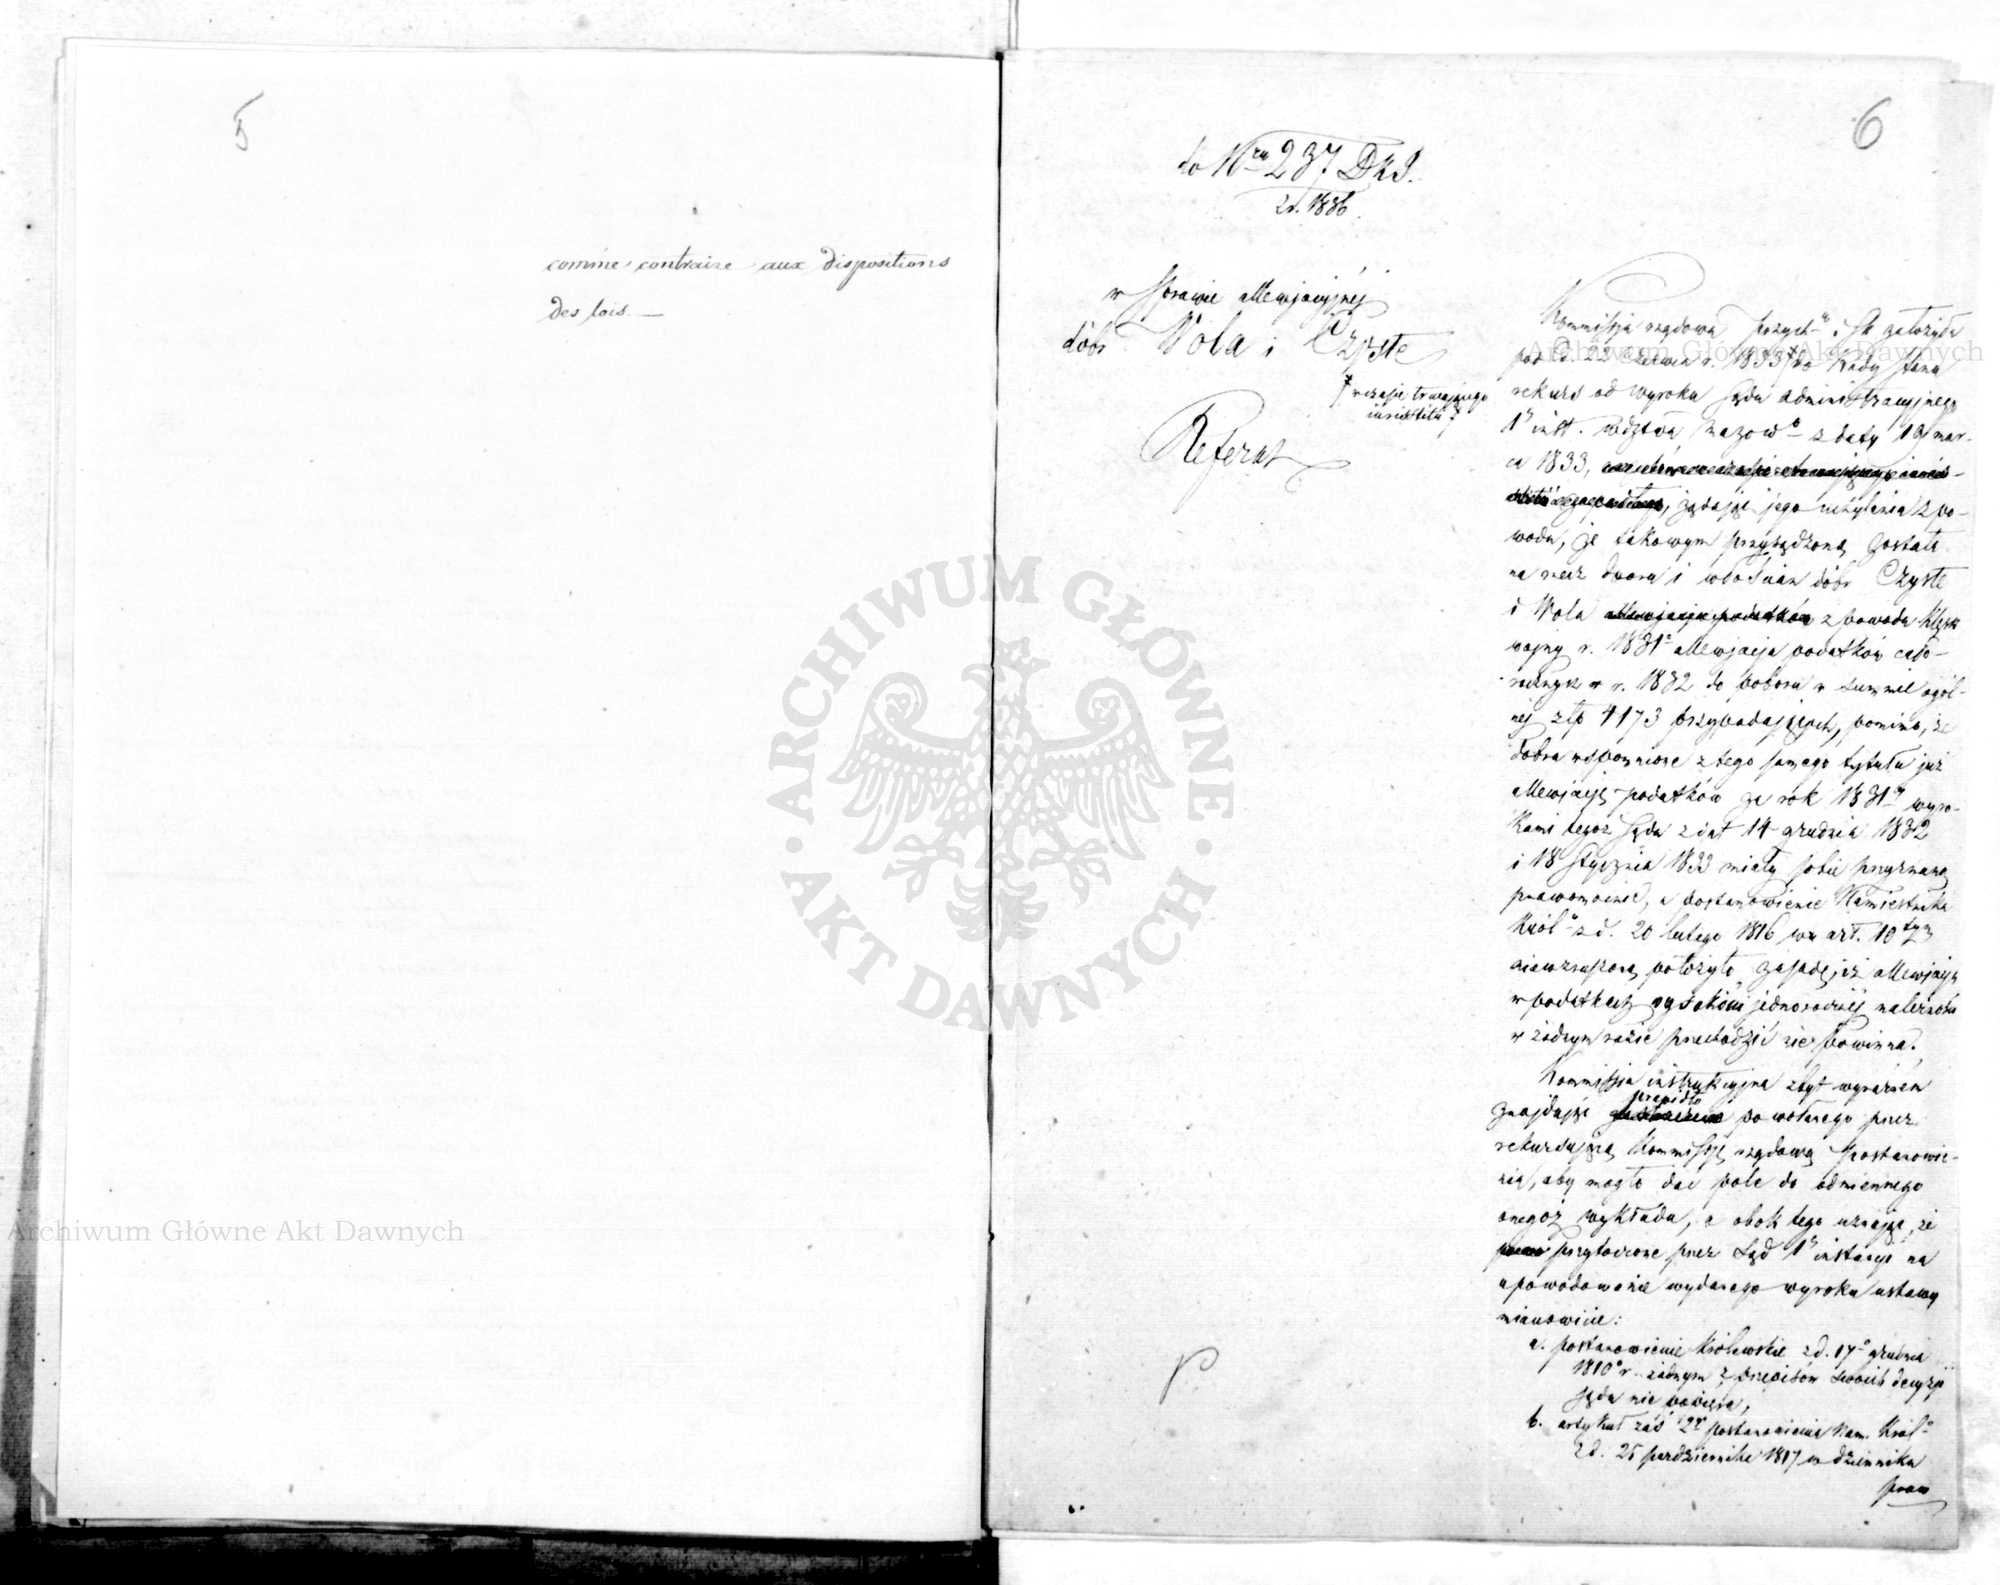 5
comme contraire aux dispositions
des lois. —
6
do Nru 237 DKS.
z r. 1836
w sprawie allewjacyjnéj
dóbr Wola i Czyste
Referat
Kommissja rządowa Przych. i Sk założyła
pod d. 22 czerwca r. 1833 do Rady Stanu
† w czasie trwającego
rekurs od wyroku Sądu administracyjnego
1 inst. wdztwa mazow z daty 19 mar-
ca 1833,
żądając jego uchylenia z po-
wodu, że takowym przysądzoną została
na rzecz dworu i włościan dóbr Czyste
i Wola allewjacja podatków z powodu klęsk
wojny r. 1831 allewjacja podatków cało-
rocznych w r. 1832 do poboru w summie ogól-
néj złp 4173 przypadających, pomimo, że
dobra wspomnione z tego samego tytułu już
allewjację podatków za rok 1831 wyro-
kami tegoż Sądu z dat 14 grudnia 1832
i 18 stycznia 1833 miały sobie przyznaną
prawomocnie, a postanowienie Namiestnika
Król. z d. 20 lutego 1816 w art. 10tym
niewzruszoną położyło zasadę, iż allewjacja
w podatkach jednorocznéj należności
w żadnym razie przechodzić nie powinna.
Kommissja instrukcyjna zbyt wyraźnem
prawidło
znajdując powołanego przez
rekursującą Kommissję rządową postanowie-
nia, aby mogło dać pole do odmiennego
onegoż wykładu, a obok tego uznając, że
przytoczone przez Sąd 1 instancji na
upowodowanie wydanego wyroku ustawy
mianowicie:
a. postanowienie królewskie z d. 17 grudnia
1810 r. żadnym z przepisów swoich decyzji
Sądu nie popiera,
b. artykuł zaś 2 postanowienia Nam. Król
z d. 25 października 1817 w dzienniku
praw